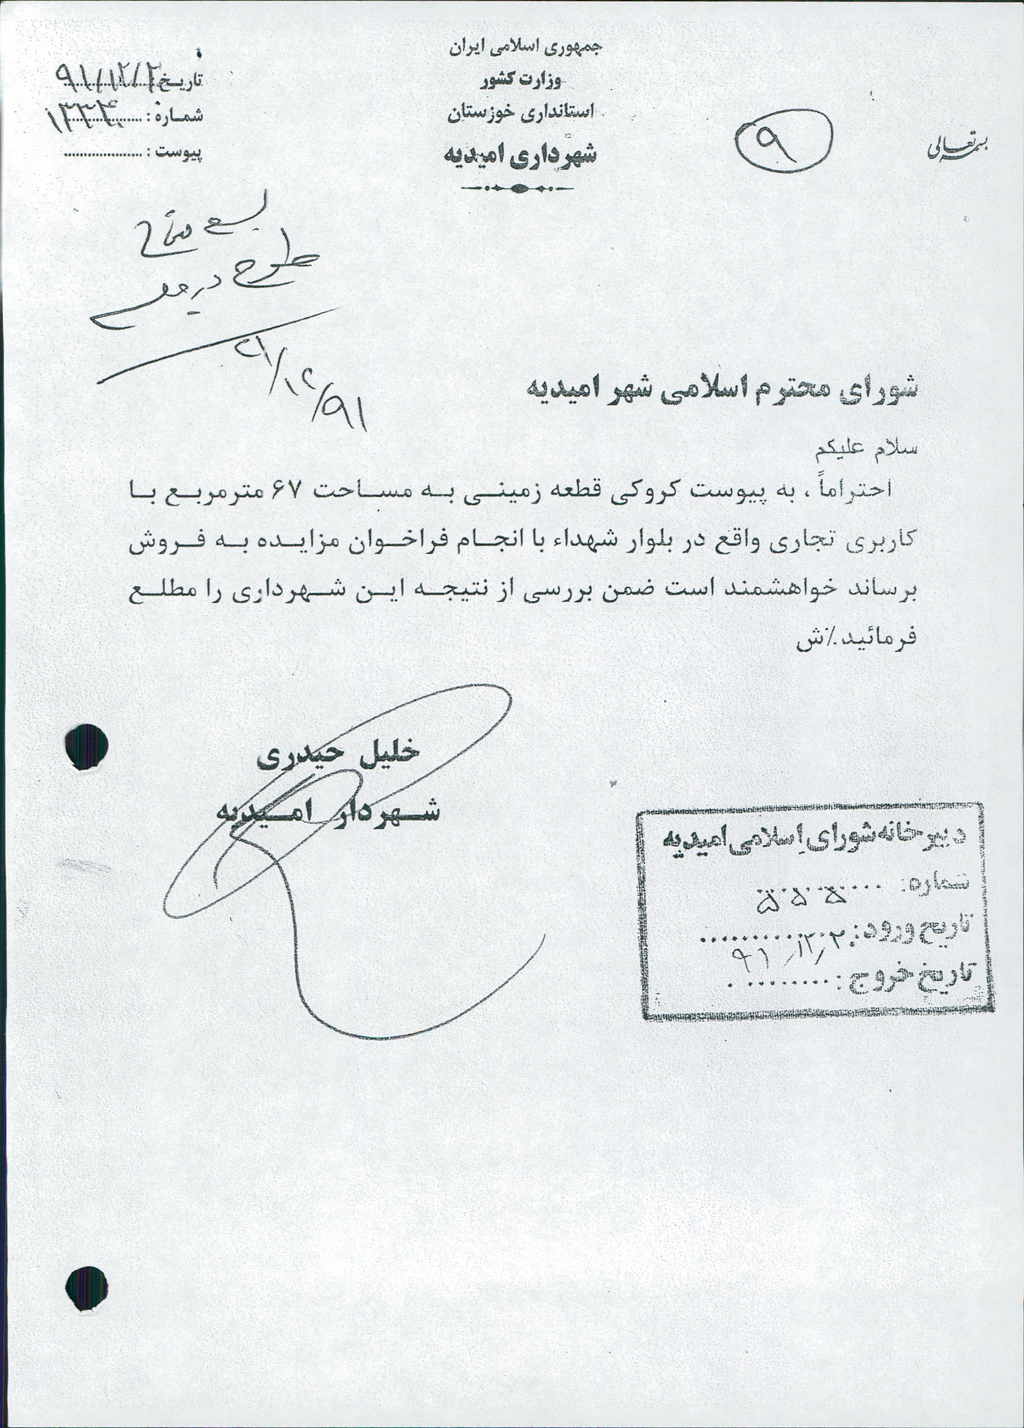 بسمه تعالی
۹
جمهوری اسلامی ایران
وزارت کشور
استانداری خوزستان
شهرداری امیدیه
تاریخ: ۹۱/۱۲/۲
شماره:
پیوست:
طرح در
۹۱/۱۲/۲۱
شورای محترم اسلامی شهر امیدیه
سلام علیکم
احتراماً، به پیوست کروکی قطعه زمینی به مساحت ۶۷ مترمربع با
کاربری تجاری واقع در بلوار شهداء با انجام فراخوان مزایده به فروش
برساند خواهشمند است ضمن بررسی از نتیجه این شهرداری را مطلع
فرمائید.٪ش
خلیل حیدری
شهردار امیدیه
دبیرخانه شورای اسلامی امیدیه
شماره: ۵۵۵
تاریخ ورود: ۹۱/۱۲/۲۰
تاریخ خروج: